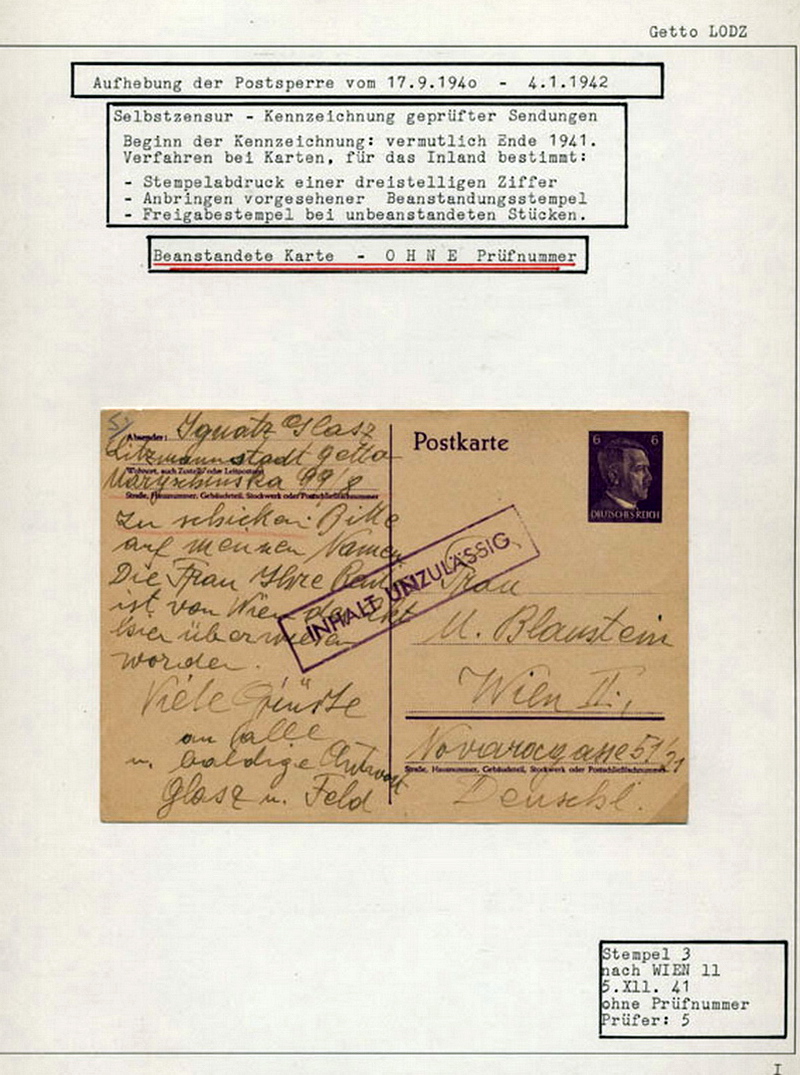 Getto LODZ
Aufhebung der Postsperre vom 17.9.194o - 4.1.1942
Selbstzensur - Kennzeichnung geprüfter Sendungen
Beginn der Kennzeichnung: vermutlich Ende 1941.
Verfahren bei Karten, für das Inland bestimmt:
- Stempelabdruck einer dreistelligen Ziffer
- Anbringen vorgesehener Beanstandungsstempel
- Freigabestempel bei unbeanstandeten Stücken.
Beanstandete Karte - O H N E Prüfnummer
Absender: Ignatz Glasz
Litzmannstadt Getto
Wohnort, auch Zustell- oder Leitpostamt
99/8
Straße, Hausnummer, Gebäudeteil, Stockwerk oder Postschließfachnummer
zu schicken. Bitte
auf meinen Namen
Die Frau Ihre
ist von Wien
hier überwiesen
worden.
Viele Grüsse
an alle
u. baldige Antwort
Glasz u. Feld
Postkarte
6 6
DEUTSCHES REICH
INHALT UNZULÄSSIG
Frau
M. Blaustein
Wien II.,
Novaragasse 51/21
Straße, Hausnummer, Gebäudeteil, Stockwerk oder Postschließfachnummer
Deuschl.
Stempel 3
nach WIEN ll
5.Xll. 41
ohne Prüfnummer
Prüfer: 5
I